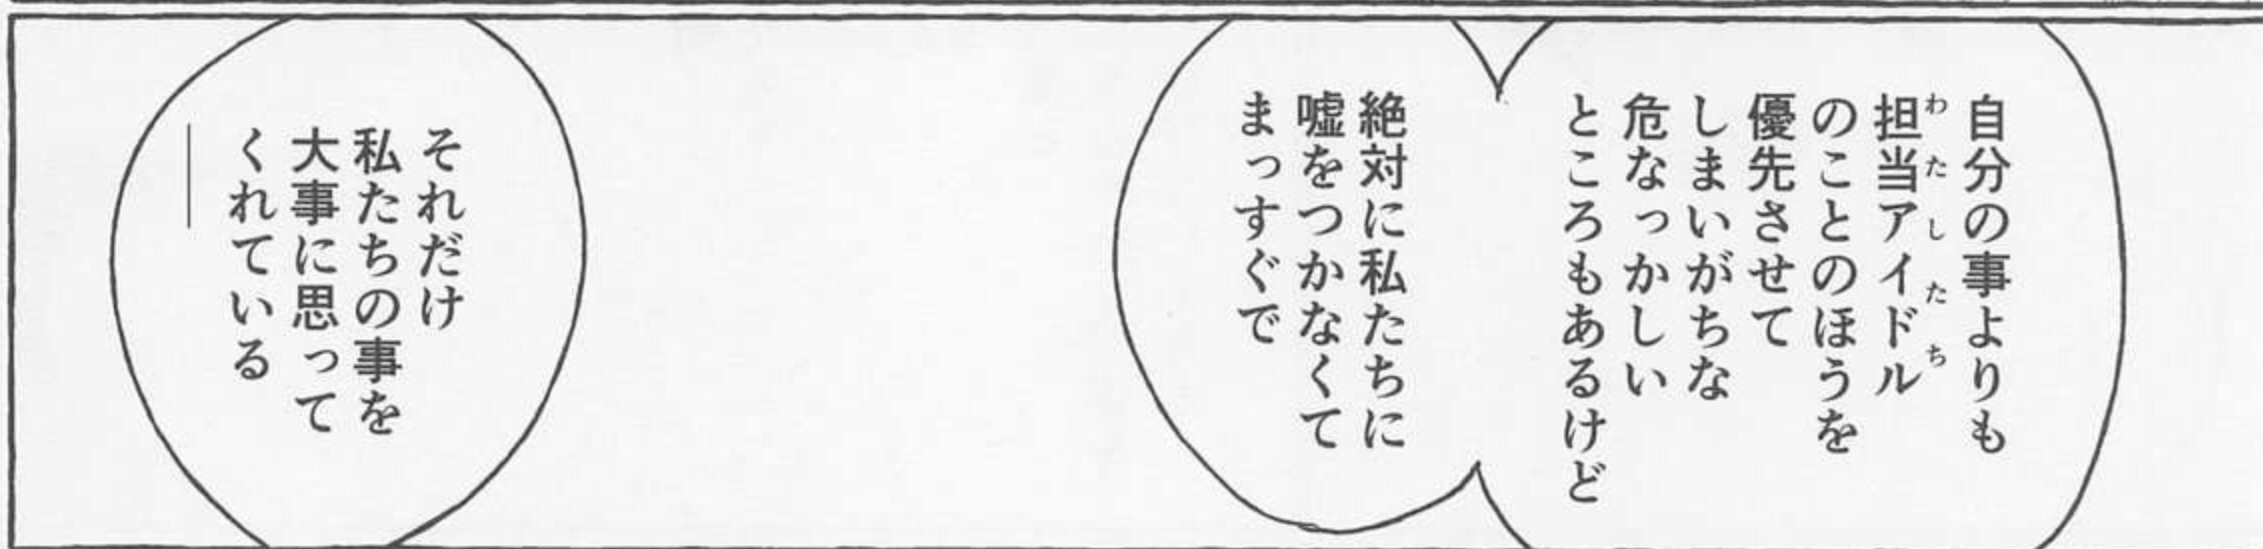 自分の事よりも
担当アイドル
わたしたち
のことのほうを
優先させて
しまいがちな
危なっかしい
ところもあるけど
絶対に私たちに
嘘をつかなくて
まっすぐで
それだけ
私たちの事を
大事に思って
くれている
――